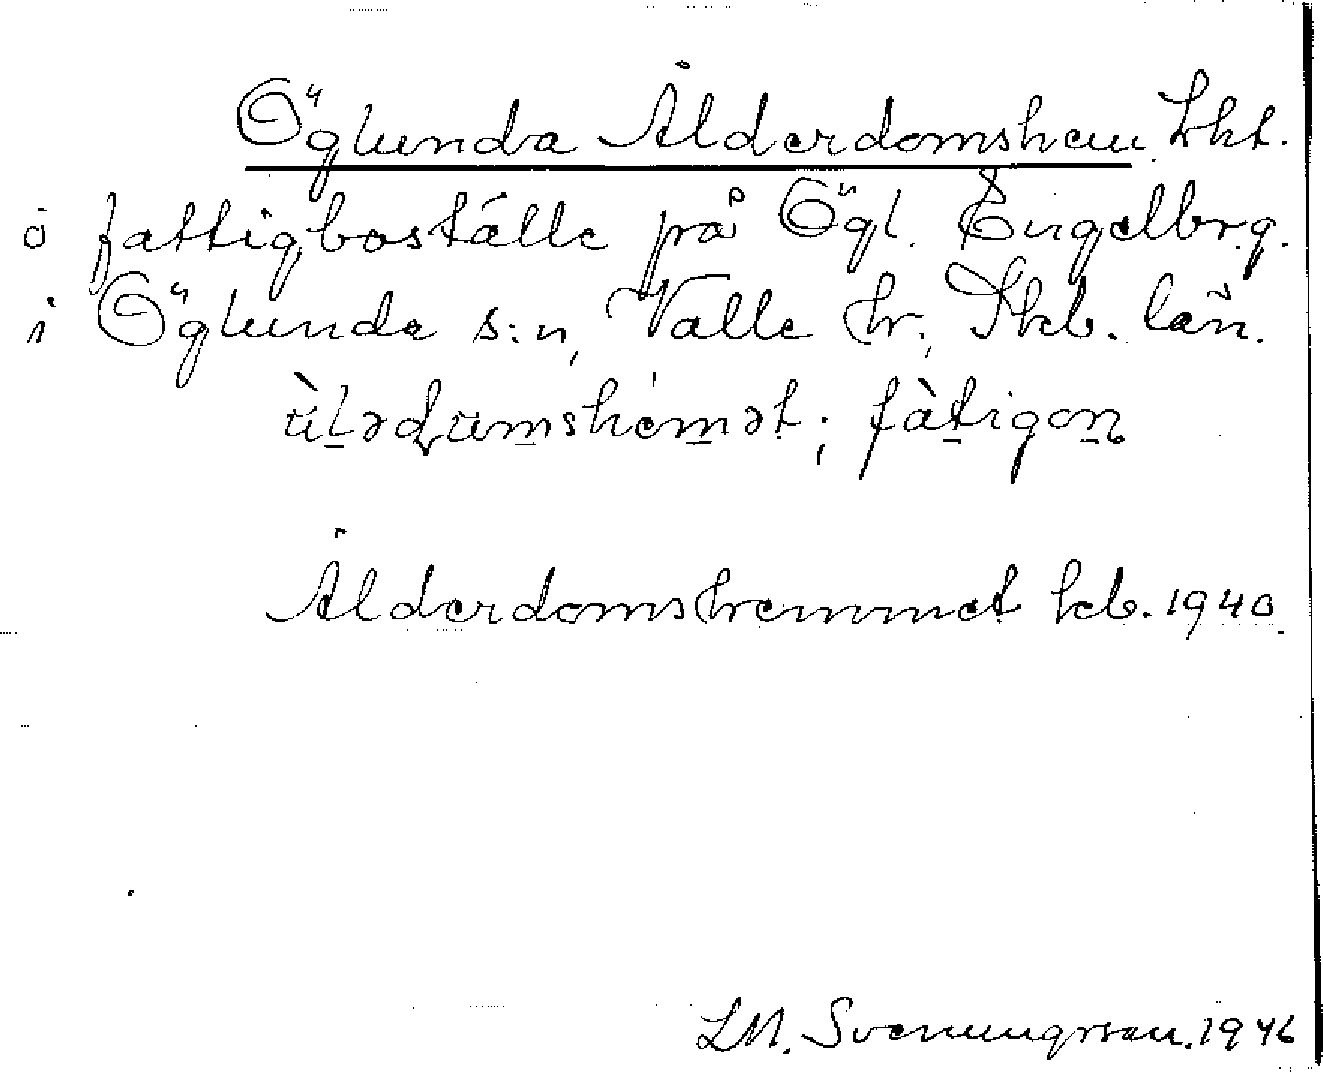 Öglunda Ålderdomshem Lht.
å fattigboställe på Ögl. Engelbrg.
i Öglunda s:n, Valle hr, Skb. län.
ùlədumshemət; fàtigon
Ålderdomshemmet kb. 1940.
L.M. Svenungsson. 1946